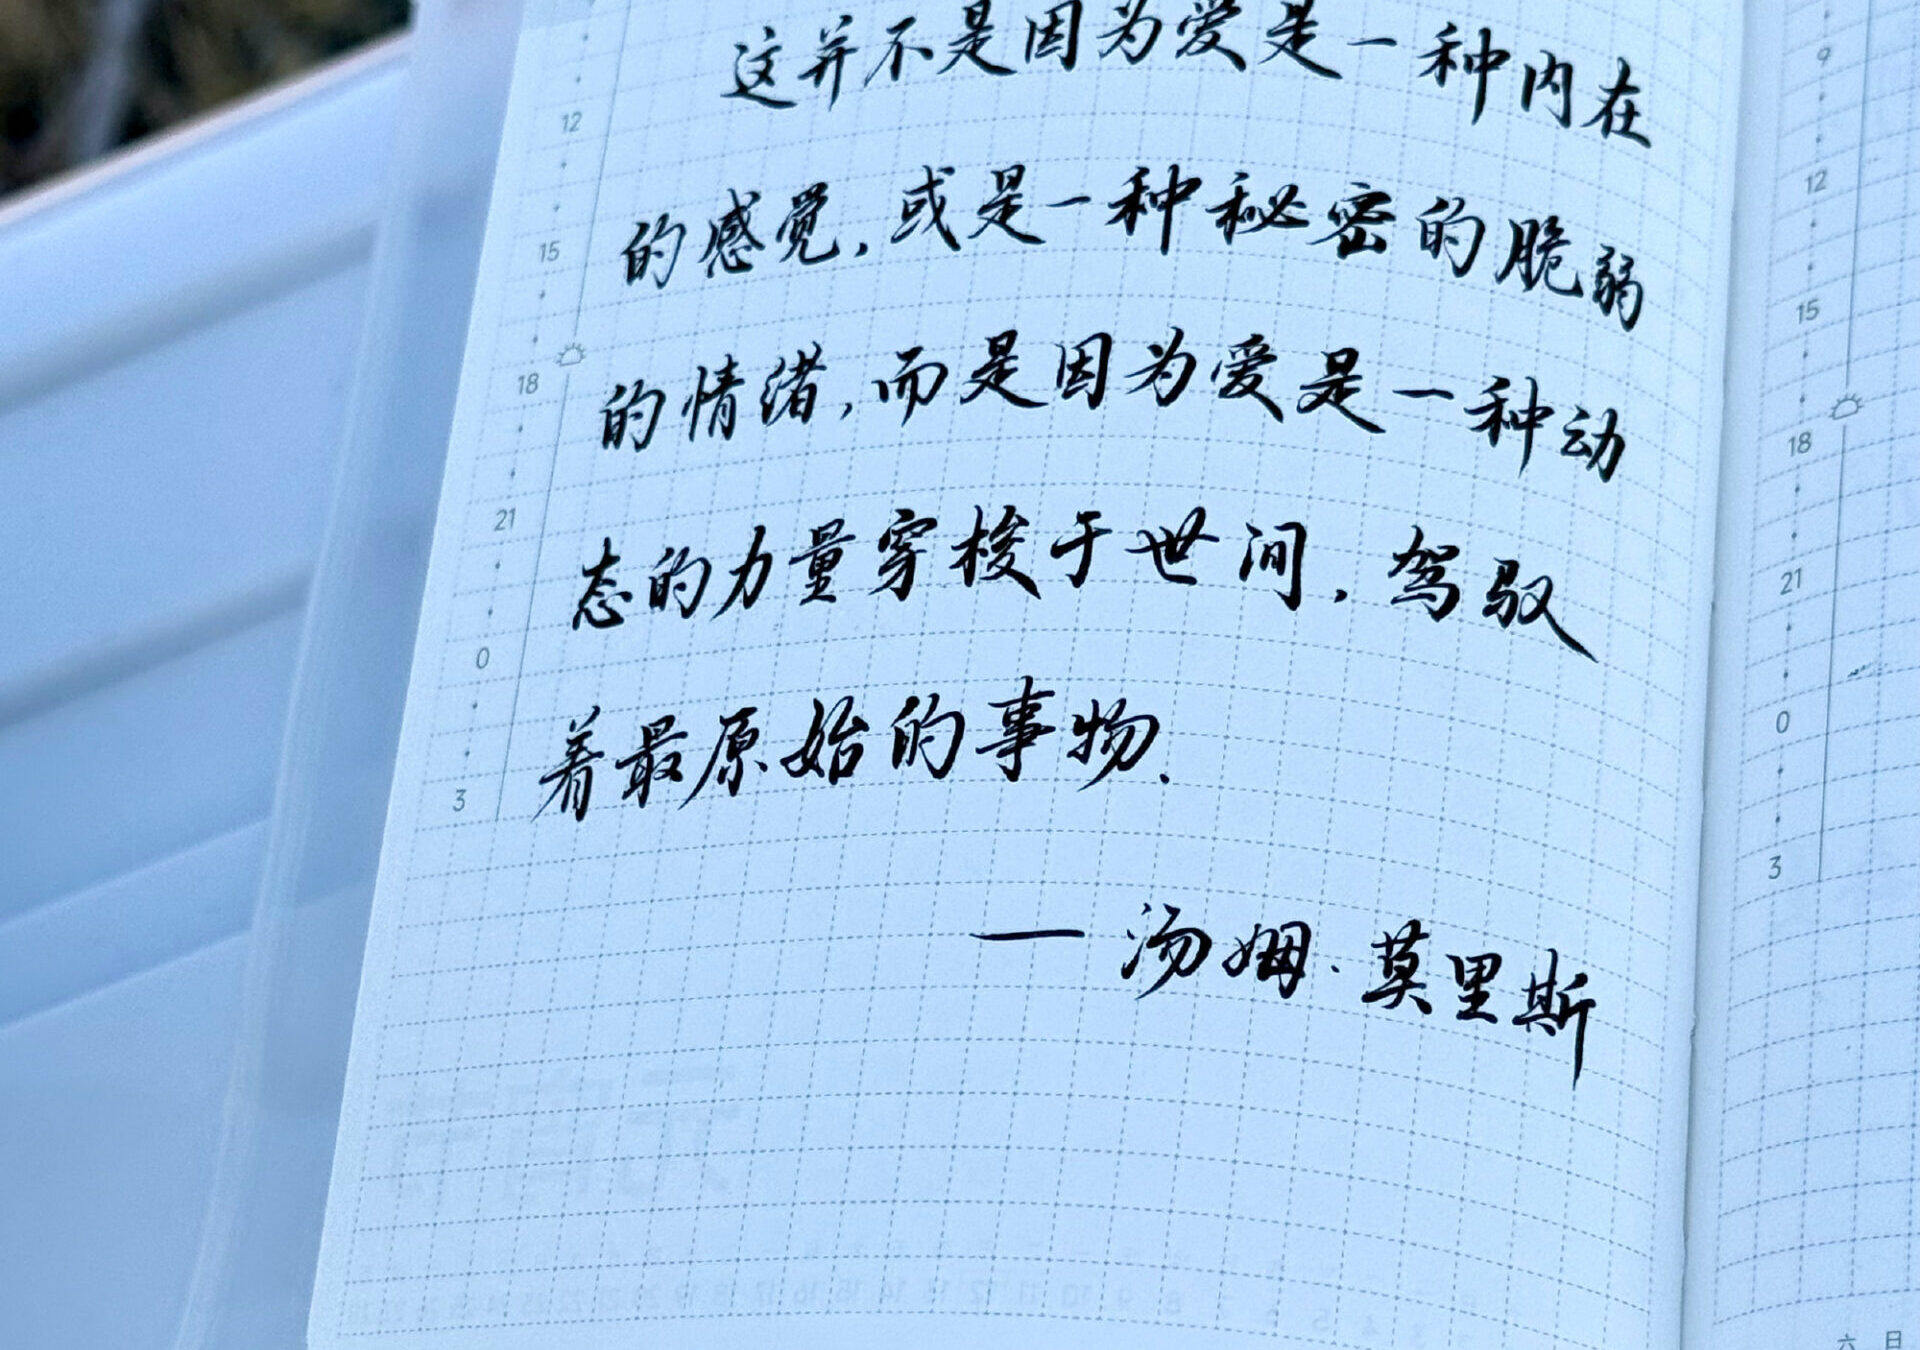 这并不是因为爱是一种内在
的感觉,或是一种秘密的脆弱
的情绪,而是因为爱是一种动
态的力量穿梭于世间,驾驭
着最原始的事物.
— 汤姆·莫里斯
12
15
18
21
0
3
9
12
15
18
21
0
3
六 日